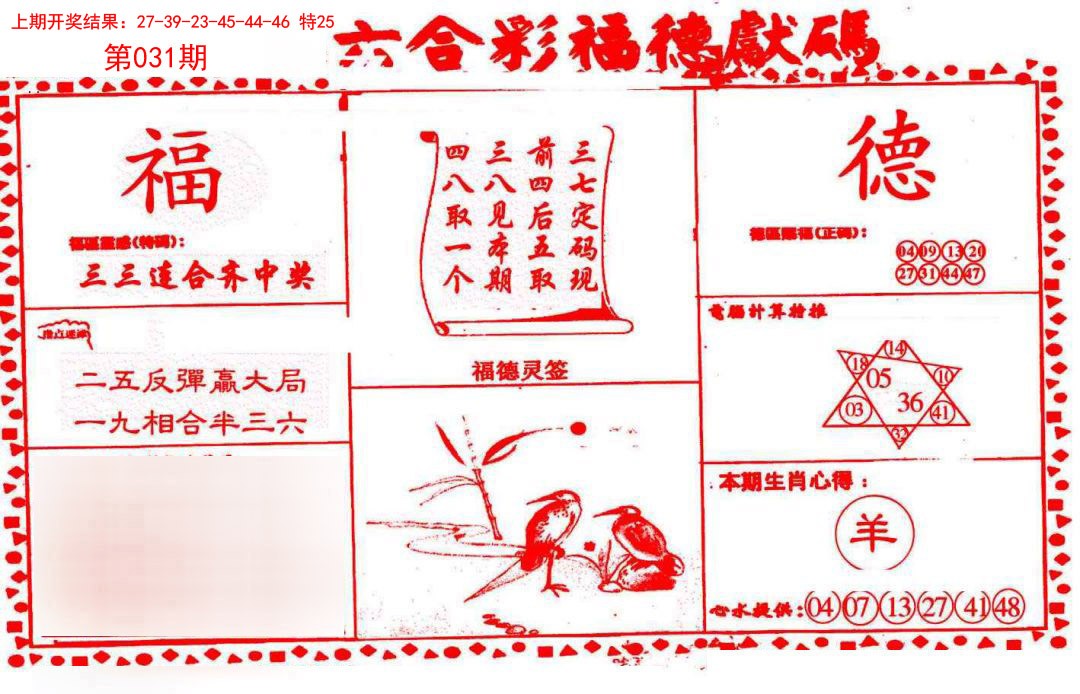 上期开奖结果：27-39-23-45-44-46 特25
第031期
六合彩福德獻碼
福
福區靈感(特碼)：
三三连合齐中奖
二五反彈贏大局
一九相合半三六
三七定码现
前四后五取
三八见本期
四八取一个
福德灵签
德
德區賜福(正碼)：
04 09 13 20
27 31 44 47
電腦計算特推
14
18 05 10
03 36 41
32
本期生肖心得：
羊
心水提供：04 07 13 27 41 48